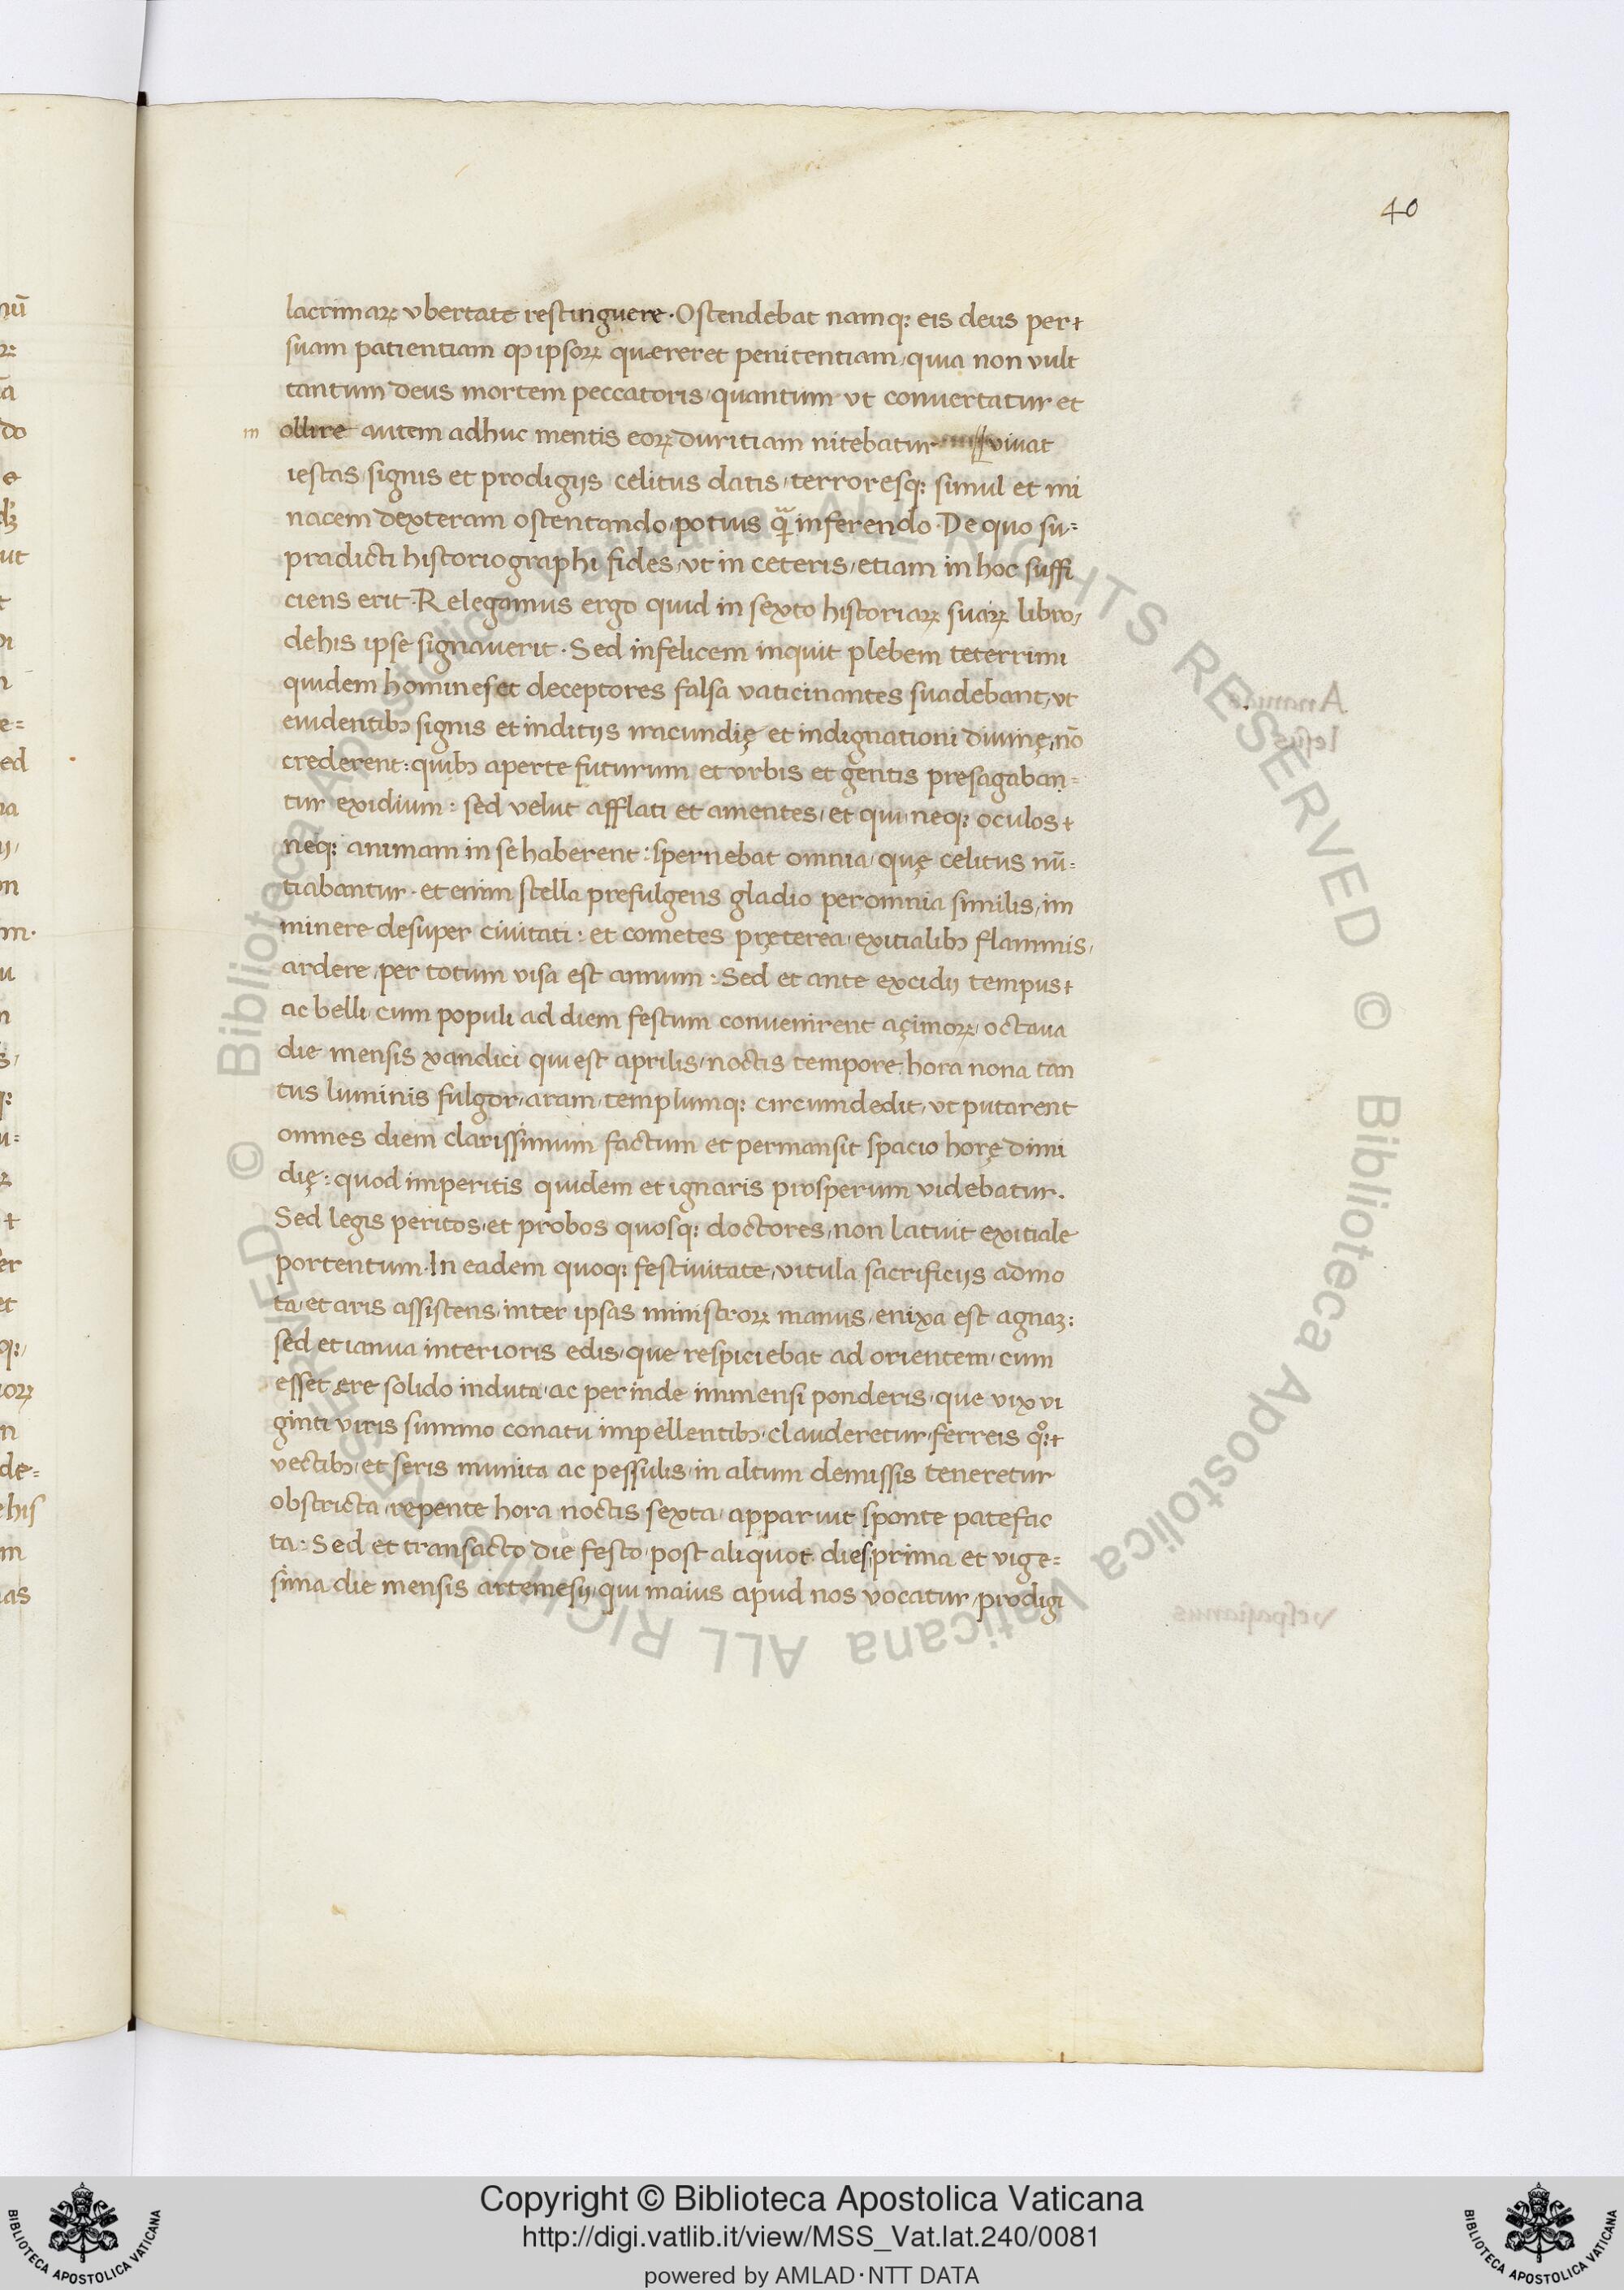 40
lacrimaꝝ vbertate restinguere · Ostendebat namq; eis deus per
suam patientiam ꝙ ipsoꝝ quæreret penitentiam, quia non vult
tantum deus mortem peccatoris, quantum vt conuertatur et
m ollire autem adhuc mentis eoꝝ duritiam nitebatur viuat
iestas, signis et prodigijs celitus datis, terroresq; simul et mi
nacem dexteram ostentando, potius qͣ inferendo · De quo su=
pradicti historiographi fides, vt in ceteris, etiam in hoc suffi
ciens erit · Relegamus ergo quid in sexto historiaꝝ suaꝝ libro,
de his ipse signauerit · Sed infelicem inquit plebem teterrimi
quidem homines et deceptores falsa vaticinantes suadebant, vt
euidentibꝰ signis et inditijs iracundię et indignationi diuinę, nō
crederent: quibꝰ aperte futurum et vrbis et gentis presagaban=
tur exidium: sed velut afflati et amentes, et qui neq; oculos
neq; animam in se haberent: spernebat omnia, quę celitus nū=
tiabantur · et enim stella prefulgens gladio per omnia similis, im
minere desuper ciuitati: et cometes pręterea, exitialibꝰ flammis,
ardere, per totum visa est annum: Sed et ante excidij tempus
ac belli, cum populi ad diem festum conuenirent açimoꝝ, octaua
die mensis xandici qui est aprilis, noctis tempore hora nona tan
tus luminis fulgor, aram, templumq; circumdedit, vt putarent
omnes diem clarissimum factum et permansit spacio horę dimi
dię: quod imperitis quidem et ignaris prosperum videbatur.
Sed legis peritos, et probos quosq; doctores, non latuit exitiale
portentum · In eadem quoq; festiuitate, vitula sacrificijs admo
ta, et aris assistens, inter ipsas ministroꝝ manus, enixa est agnaꝫ:
sed et ianua interioris edis, que respiciebat ad orientem, cum
esset ęre solido induta, ac perinde immensi ponderis, que vix vi
ginti viris summo conatu impellentibꝰ, clauderetur, ferreis qͦ;
vectibꝰ, et seris munita ac pessulis, in altum demissis teneretur
obstricta, repente hora noctis sexta, apparuit sponte patefac
ta: Sed et transacto die festo, post aliquot dies, prima et vige=
sima die mensis artemesij, qui maius apud nos vocatur, prodigi
© Biblioteca Apostolica Vaticana ALL RIGHTS RESERVED © Biblioteca Apostolica Vaticana ALL RIGHTS RESERVED
Copyright © Biblioteca Apostolica Vaticana
http://digi.vatlib.it/view/MSS_Vat.lat.240/0081
powered by AMLAD·NTT DATA
BIBLIOTECA APOSTOLICA VATICANA
BIBLIOTECA APOSTOLICA VATICANA